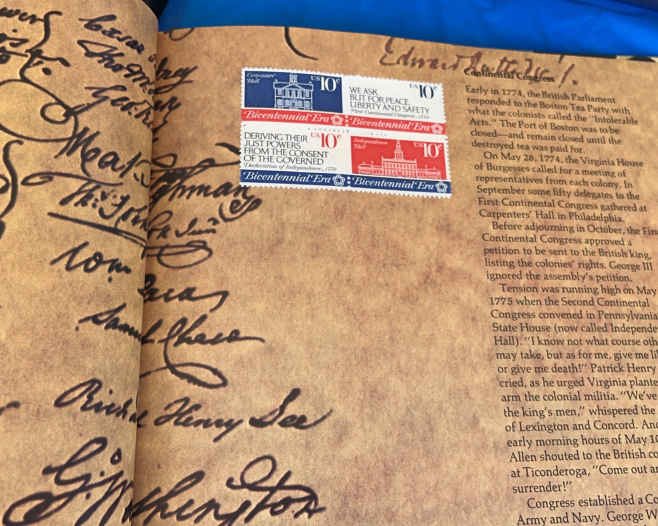 Edward
Samuel Chase
Richard Henry Lee
G. Washington
Carpenters'
Hall
US 10c
WE ASK
BUT FOR PEACE,
LIBERTY AND SAFETY
First Continental Congress, 1774
US 10c
Bicentennial Era
Bicentennial Era
DERIVING THEIR
JUST POWERS
FROM THE CONSENT
OF THE GOVERNED
Declaration of Independence, 1776
US 10c
Independence
Hall
US 10c
Bicentennial Era
Bicentennial Era
Continental Congress
Early in 1774, the British Parliament
responded to the Boston Tea Party with
what the colonists called the "Intolerable
Acts." The Port of Boston was to be
closed—and remain closed until the
destroyed tea was paid for.
On May 28, 1774, the Virginia House
of Burgesses called for a meeting of
representatives from each colony. In
September some fifty delegates to the
First Continental Congress gathered at
Carpenters' Hall in Philadelphia.
Before adjourning in October, the Firs
Continental Congress approved a
petition to be sent to the British king,
listing the colonies' rights. George III
ignored the assembly's petition.
Tension was running high on May
1775 when the Second Continental
Congress convened in Pennsylvania
State House (now called Independe
Hall). "I know not what course oth
may take, but as for me, give me li
or give me death!" Patrick Henry
cried, as he urged Virginia plante
arm the colonial militia. "We've
the king's men," whispered the
of Lexington and Concord. And
early morning hours of May 10
Allen shouted to the British co
at Ticonderoga, "Come out an
surrender!"
Congress established a Co
Army and Navy. George W